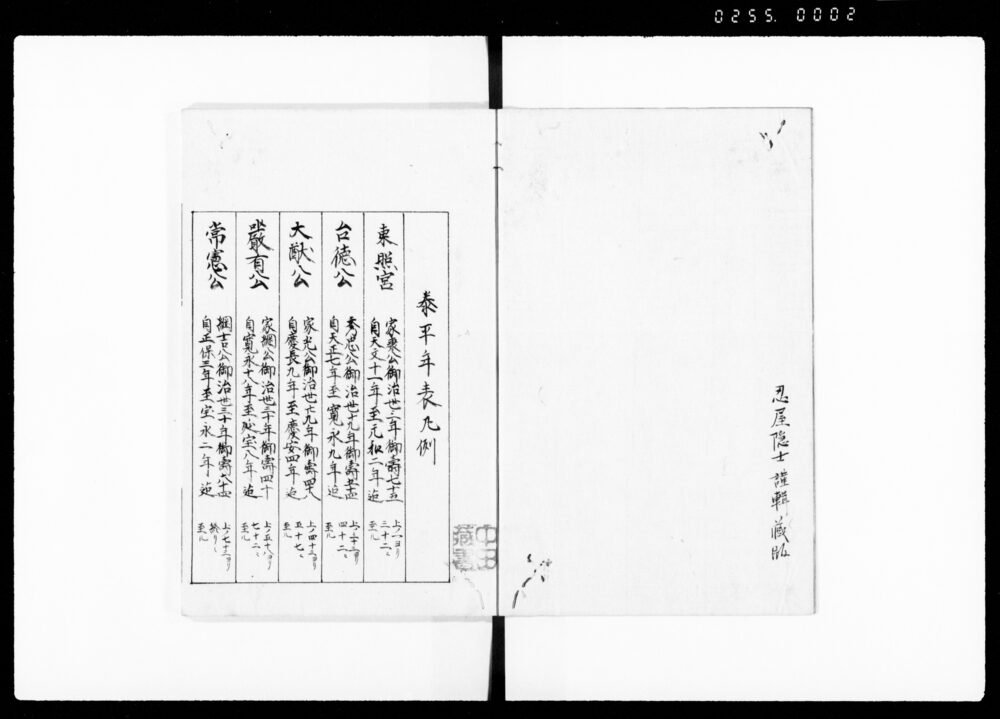 0255. 0002
忍屋隠士謹輯蔵版
泰平年表凡例
東照宮
家康公御治世三年御寿七十五
自天文十一年至元和二年迄
上ノ一ヨリ
三十二
至ル
台徳公
秀忠公御治世十九年御寿五十四
自天正七年至寛永九年迄
四十二
至ル
大猷公
家光公御治世廿九年御寿四十八
自慶長九年至慶安四年迄
上ノ四十三ヨリ
五十七
至ル
嚴有公
家綱公御治世三十年御寿四十
自寛永十八年至延宝八年迄
七十二
至ル
常憲公
綱吉公御治世三十年御寿六十四
自正保三年至宝永二年迄
上ノ七十三ヨリ
終リ
至ル
中田
蔵書